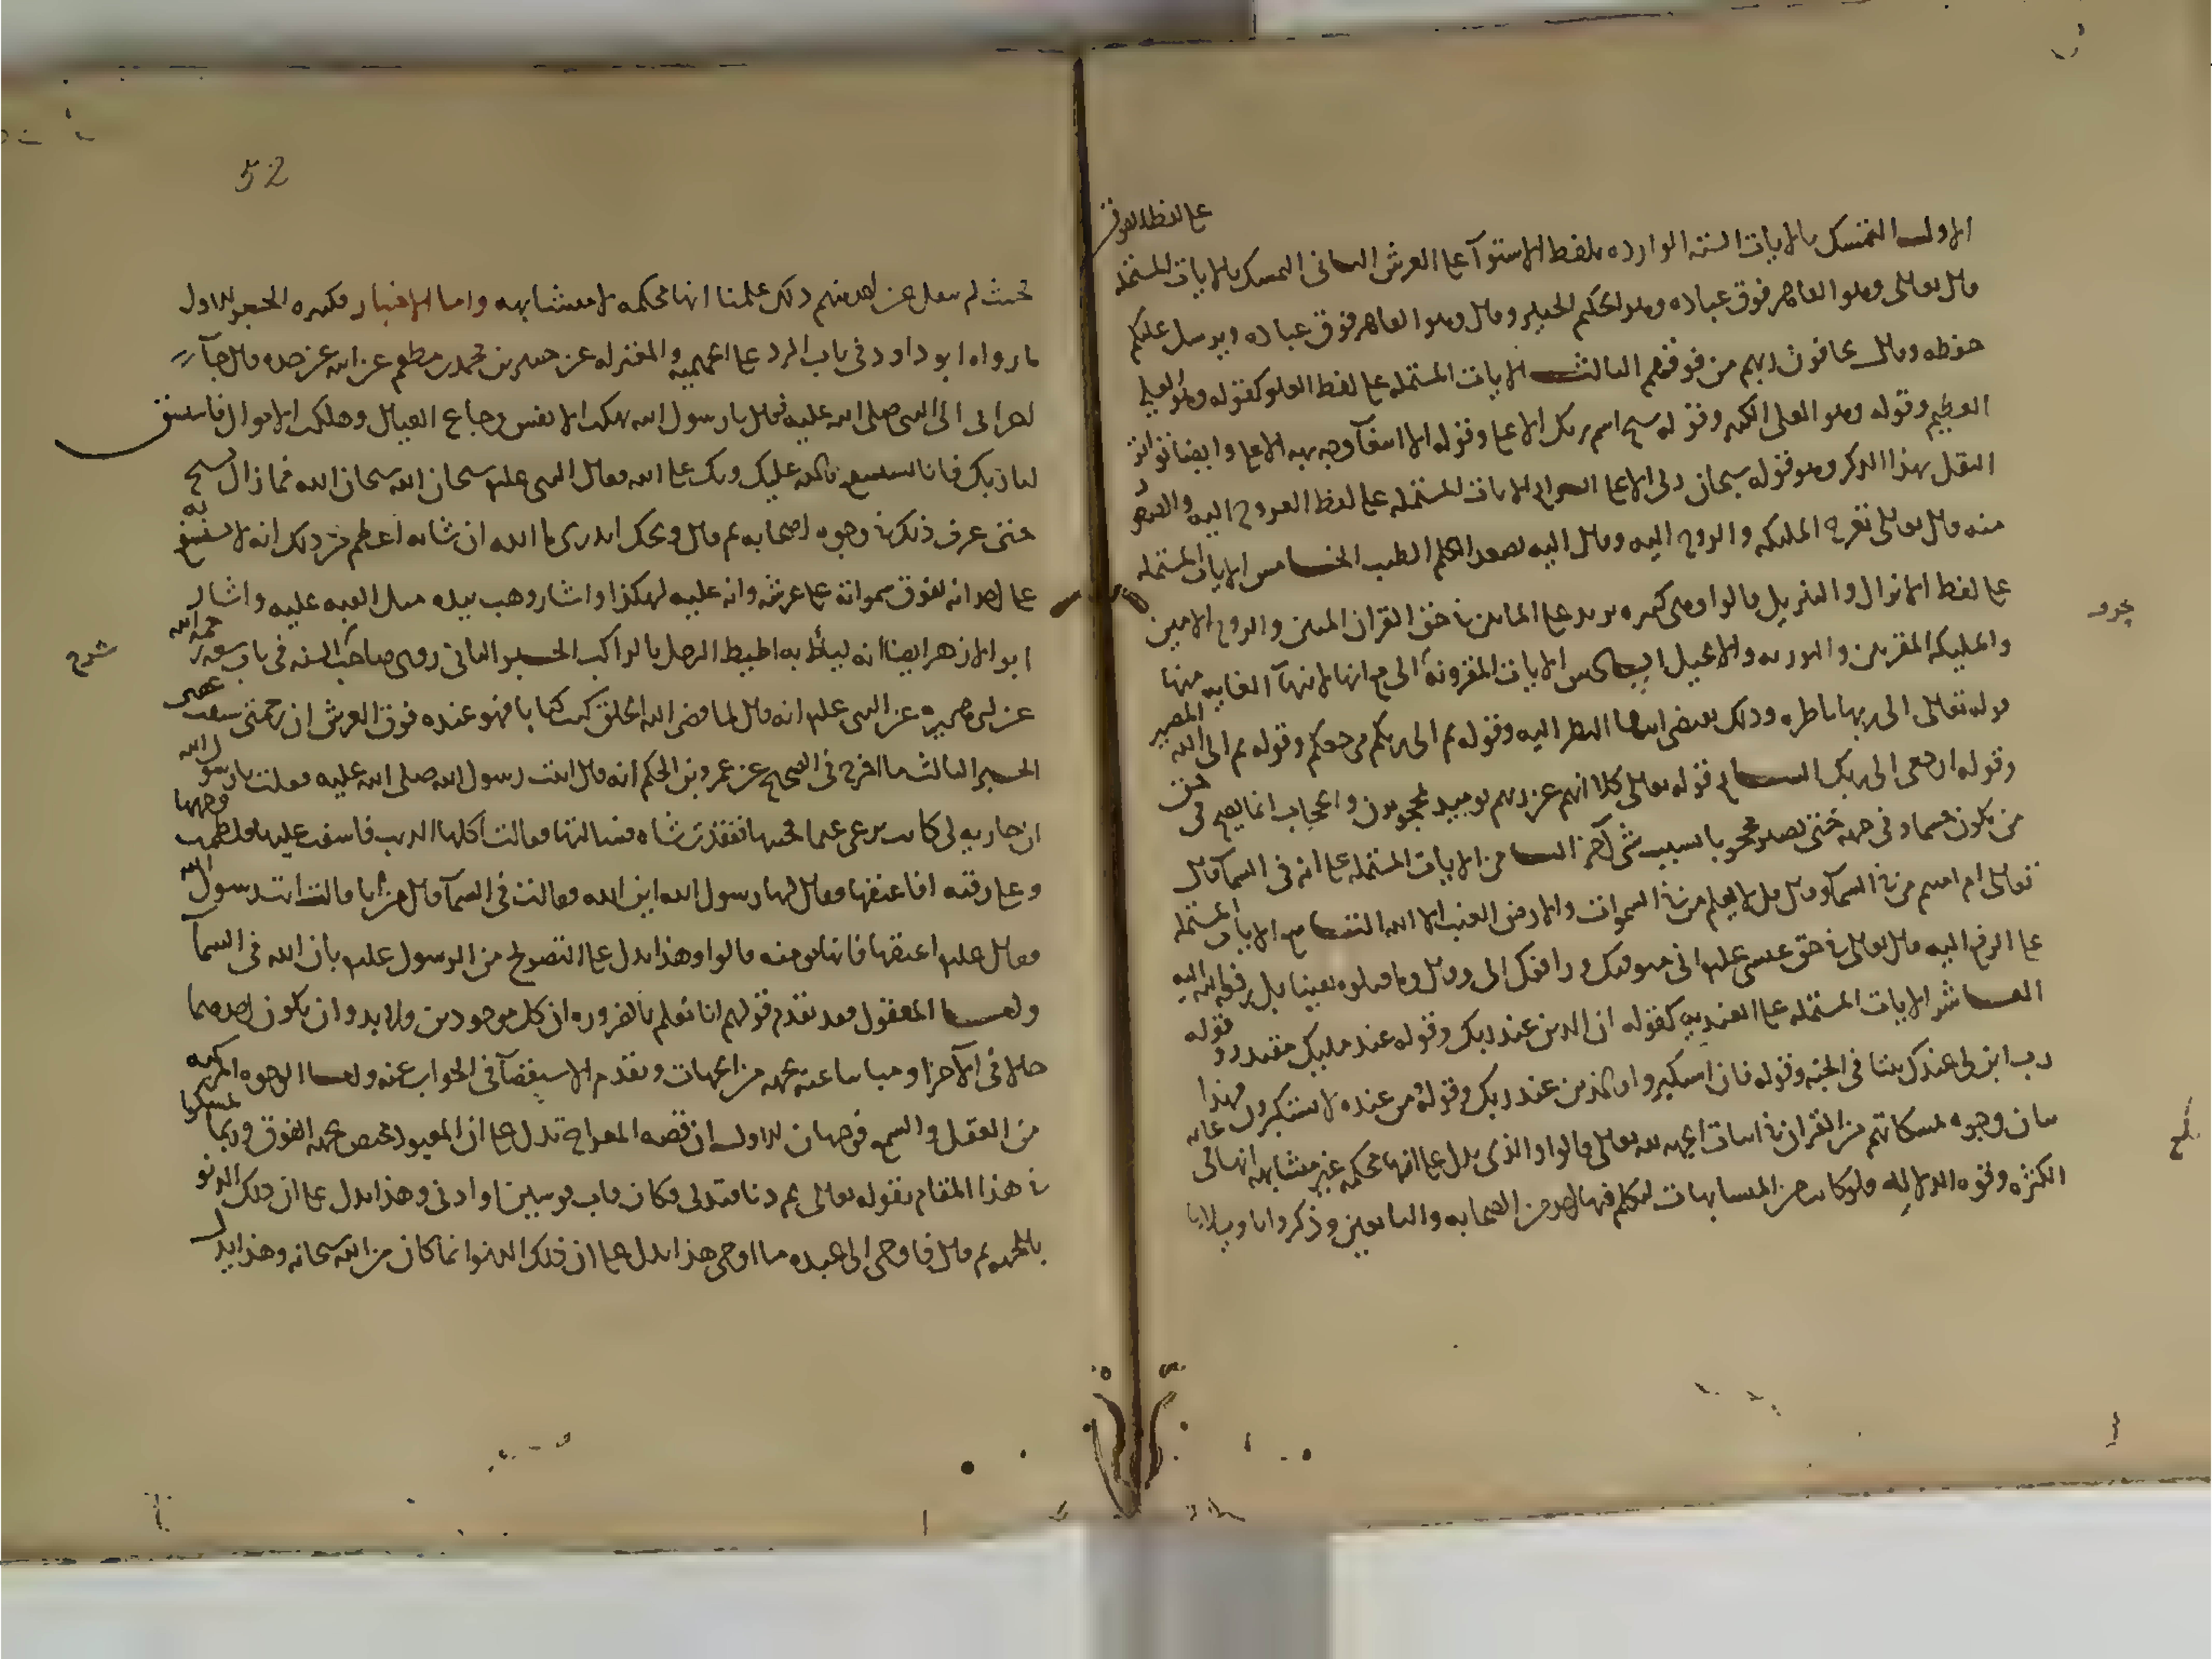 الاول التمسك بالايات الستة الوارده بلفظ الاستوآ على العرش الثانى التمسك بالايات المشتمله
على لفظ الفوق
قال تعالى وهو القاهر فوق عباده وهو الحكيم الخبير وقال وهو القاهر فوق عباده ويرسل عليكم
حفظه وقال يخافون ربهم من فوقهم الثالث الايات المشتمله على لفظ العلو كقوله وهو العلي
العظيم وقوله وهو العلى الكبير وقوله سبح اسم ربك الاعلى وقوله الا ابتغآ وجه ربه الاعلى وايضا تواتر
النقل بهذا الذكر وهو قوله سبحان ربى الاعلى الرابع الايات المشتمله على لفظ العروج اليه والصعود
منه قال تعالى تعرج المليكه والروح اليه وقال اليه يصعد الكلم الطيب الخامس الايات المشتمله
على لفظ الانزال والتنزيل قالوا وهى كثيره تزيد على المايتين فى حق القران المبين والروح الامين
والمليكه المقربين والتوريه والانجيل السادس الايات المقرونة الى مع انها لانتهآ الغايه منها
قوله تعالى الى ربها ناظره وذلك يقتضى انتها النظر اليه وقوله ثم الى ربكم مرجعكم وقوله ثم الى الله المصير
وقوله ارجعى الى ربك السابع قوله تعالى كلا انهم عن ربهم يوميذ لمحجوبون والحجاب انما يصح فى حق
من يكون جسما وفى جهه حتى يصير محجوبا بسبب شى آخر الثامن الايات المشتمله على انه فى السما قال
تعالى ام امنتم من فى السما وقال قل لا يعلم من فى السموات والارض الغيب الا الله التاسع الايات المشتمله
على الرفع اليه قال تعالى فى حق عيسى عليلم انى متوفيك ورافعك الى وقال وما قتلوه يقينا بل رفعه الله اليه
العاشر الايات المشتمله على العنديه كقوله ان الذين عند ربك وقوله عند مليك مقتدر وقوله
رب ابن لى عندك بيتا فى الجنه وقوله فان استكبروا فالذين عند ربك وقوله ومن عنده لا يستكبرون فهذا
بيان وجوه تمسكاتهم من القران فى اثبات الجهه لله تعالى قالوا والذى يدل على انها محكمه غير متشابهه انها فى غايه
الكثره وقوه الدلاله ولو كانت من المتشابهات لتكلم فيها احد من الصحابه والتابعين وذكروا تاويلاتها
52
فحيث لم ينقل عن احد منهم ذلك علمنا انها محكمه لا متشابهه واما الاخبار فكثيره الخبر الاول
ما رواه ابو داود فى باب الرد على الجهميه والمعتزله عن جبير بن محمد بن مطعم عن ابيه عن جده قال جآء
اعرابى الى النبى صلى الله عليه فقال يا رسول الله نهكت الانفس وجاع العيال وهلكت الاموال فاستسق
لنا ربك فانا نستشفع بالله عليك وبك على الله فقال النبى عليلم سبحان الله سبحان الله فما زال يسبح
حتى عرف ذلك فى وجوه اصحابه ثم قال ويحك اتدرى ما الله ان شانه اعظم من ذلك انه لا يستشفع به
على احد انه لفوق سمواته على عرشه وانه عليه لهكذا واشار وهب بيده مثل القبه عليه واشار
ابو الازهر ايضا انه ليئط به اطيط الرحل بالراكب الخبر الثانى روى صاحب السنه فى باب سعه رحمه الله
عن ابى هريره عن النبى عليلم انه قال لما قضى الله الخلق كتب كتابا فهو عنده فوق العرش ان رحمتى سبقت غضبى
الخبر الثالث ما اخرج فى الصحيح عن عمر وبن الحكم انه قال اتيت رسول الله صلى الله عليه فقلت يا رسول الله
ان جاريه لى كانت ترعى غنما فجئتها ففقدت شاه فسالتها فقالت اكلها الذيب فاسفت عليها فلطمت وجهها
وعلى رقبه افاعتقها فقال لها رسول الله اين الله فقالت فى السمآ قال من انا قالت انت رسول الله
فقال عليلم اعتقها فانها مومنه قالوا وهذا يدل على التصريح من الرسول عليلم بان الله فى السمآ
واما المعقول فقد تقدم قولهم انا نعلم بالضروره ان كل موجودين ولا بد وان يكون احدهما
حالا فى الآخر او مباينا عنه بجهه من الجهات وتقدم الاستقصآ فى الجواب عنه واما الوجوه المركبه
من العقل والسمع فوجهان الاول ان قصه المعراج تدل على ان المعبود مختص بجهه الفوق وربما تمسكوا
فى هذا المقام بقوله تعالى ثم دنا فتدلى فكان قاب قوسين او ادنى وهذا يدل على ان ذلك الدنو
بالجهه ثم قال فاوحى الى عبده ما اوحى هذا يدل على ان ذلك الدنو انما كان من الله سبحانه وهذا يدل